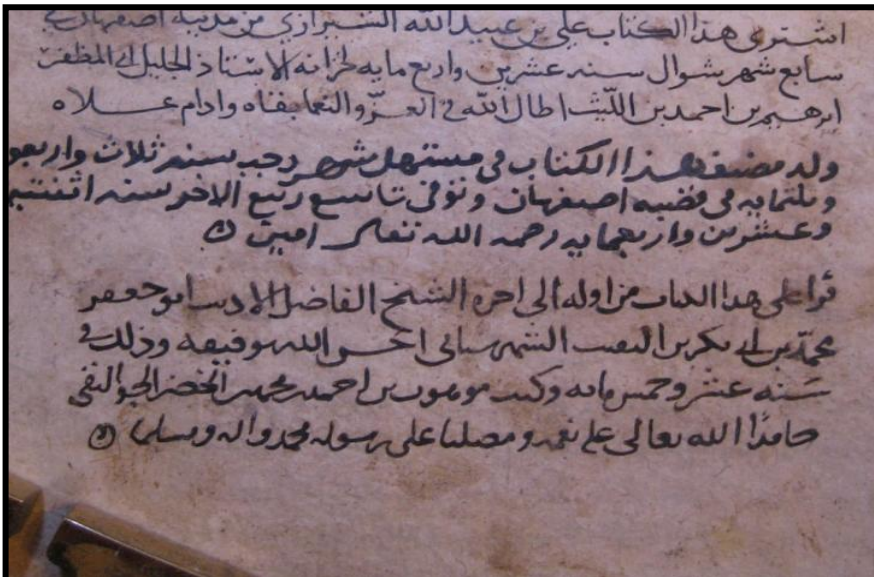 اشترى هذا الكتاب علي بن عبيد الله الشيرازي من مدينة اصفهان في
سابع شهر شوال سنه عشرين واربع مايه لخزانه الاستاذ الجليل ابي المظفر
ابرهيم بن احمد بن الليث اطال الله في العز والنعما بقاه وادام عــلاه
ولد مصنف هذا الكتاب في مستهل شهر رجب سنه ثلاث واربعو
وثلثمايه في قصبه اصفهان وتوفي تاسع ربيع الاخر سنه اثنتين
وعشرين واربعمايه رحمه الله امين
قرا علي هذا الكتاب من اوله الى اخره الشيخ الفاضل الاديب ابو جعفر
محمد بن ابي بكر بن النقيب الشهرستاني احسن الله توفيقه وذلك في
سنه عشر وخمس مائه وكتب موهوب بن احمد بن محمد بن الخضر الجواليقي
حامدًا الله تعالى على نعمه ومصليا على رسوله محمد واله ومسلما